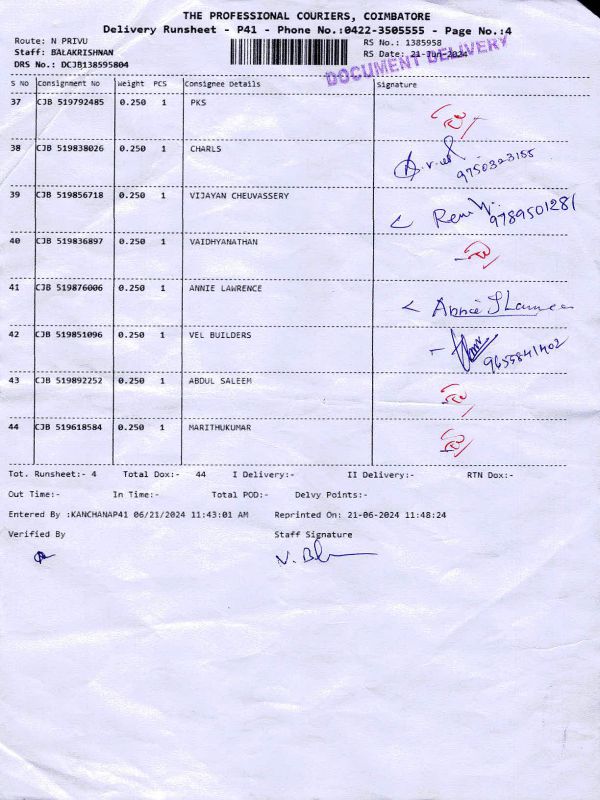 THE PROFESSIONAL COURIERS, COIMBATORE
Delivery Runsheet - P41 - Phone No.:0422-3505555 - Page No.:4
Route: N PRIVU RS No.: 1385958
Staff: BALAKRISHNAN RS Date: 21-Jun-2024
DOCUMENT DELIVERY
DRS No.: DCJB138595804
S No Consignment No Weight PCS Consignee Details Signature
37 CJB 519792485 0.250 1 PKS
38 CJB 519838026 0.250 1 CHARLS
9750323155
39 CJB 519856718 0.250 1 VIJAYAN CHEUVASSERY
9789501281
40 CJB 519836897 0.250 1 VAIDHYANATHAN
41 CJB 519876006 0.250 1 ANNIE LAWRENCE
Annie
42 CJB 519851096 0.250 1 VEL BUILDERS
9655841402
43 CJB 519892252 0.250 1 ABDUL SALEEM
44 CJB 519618584 0.250 1 MARITHUKUMAR
Tot. Runsheet:- 4 Total Dox:- 44 I Delivery:- II Delivery:- RTN Dox:-
Out Time:- In Time:- Total POD:- Delvy Points:-
Entered By :KANCHANAP41 06/21/2024 11:43:01 AM Reprinted On: 21-06-2024 11:48:24
Verified By Staff Signature